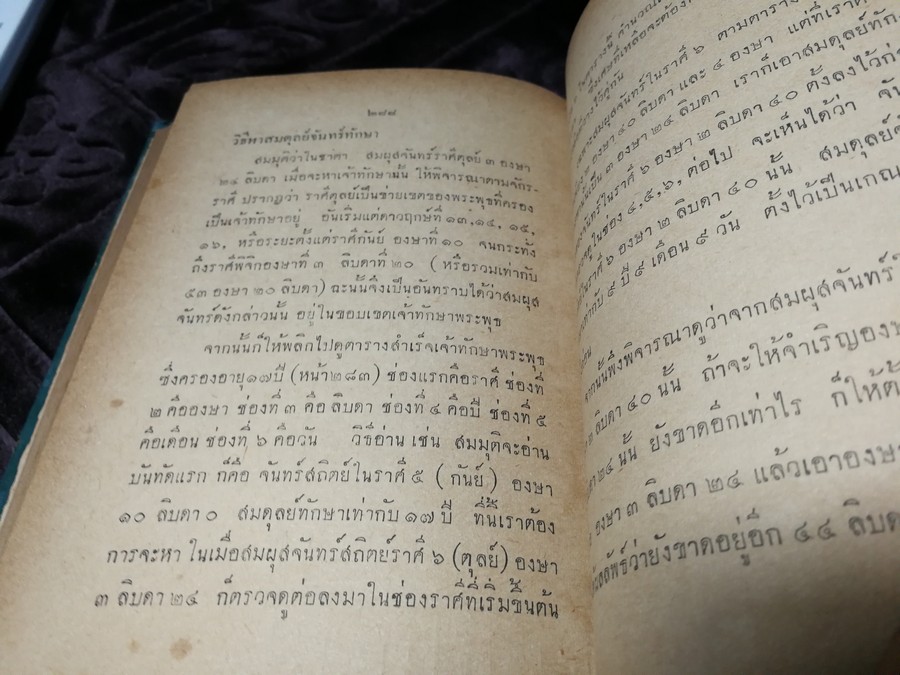 ๒๙๔
วิธีหาสมดุลย์จันทร์ทักษา
สมมุติว่าในชาตา สมผุสจันทร์ราศีตุลย์ ๓ องษา
๒๔ ลิบดา เมื่อจะหาเจ้าทักษานั้น ให้พิจารณาตามจักร-
ราศี ปรากฏว่า ราศีตุลย์เป็นข่ายเขตของพระพุธที่ครอง
เป็นเจ้าทักษาอยู่ อันเริ่มแต่ดาวฤกษ์ที่ ๑๓, ๑๔, ๑๕,
๑๖, หรือระยะตั้งแต่ราศีกันย์ องษาที่ ๑๐ จนกระทั่ง
ถึงราศีพิจิกองษาที่ ๓ ลิบดาที่ ๒๐ (หรือรวมเท่ากับ
๕๓ องษา ๒๐ ลิบดา) ฉะนั้นจึงเป็นอันทราบได้ว่าสมผุส
จันทร์ดังกลาวนั้น อยู่ในขอบเขตเจ้าทักษาพระพุธ
จากนั้นก็ให้พลิกไปดูตารางสำเร็จเจ้าทักษาพระพุธ
ซึ่งครองอายุ๑๗ปี (หน้า๒๘๓) ช่องแรกคือราศี ช่องที่
๒ คือองษา ช่องที่ ๓ คือ ลิบดา ช่องที่ ๔ คือปี ช่องที่ ๕
คือเดือน ช่องที่ ๖ คือวัน วิธีอ่าน เช่น สมมุติจะอ่าน
บันทัดแรก ก็คือ จันทร์สถิตย์ในราศี ๕ (กันย์) องษา
๑๐ ลิบดา ๐ สมดุลย์ทักษาเท่ากับ ๑๗ ปี ทีนี้เราต้อง
การจะหา ในเมื่อสมผุสจันทร์สถิตย์ราศี ๖ (ตุลย์) องษา
๓ ลิบดา ๒๔ ก็ตรวจดูต่อลงมาในช่องราศีที่เริ่มขึ้นต้น
ตารางนี้ คำนวณ
ซึ่งเศษที่เหลือจะต้อง
ไว้คู่กัน
สมผุสจันทร์ในราศี ๖ ตามตาราง
องษา ๔๐ ลิบดา และ ๔ องษา แต่ที่เราต้
เป็น ๓ องษา ๒๔ ลิบดา เราก็เอาสมดุลย์ทัก
จันทร์ในราศี ๖ องษา ๒ ลิบดา ๔๐ ตั้งลงไว้ก่
ในช่อง ๔,๕,๖, ต่อไป จะเห็นได้ว่า จัน
ในราศี ๖ องษา ๒ ลิบดา ๔๐ นั้น สมดุลย์จั
เท่ากับ ๙ ปี ๙ เดือน ๙ วัน ตั้งไว้เป็นเกณ
จากนั้นพึงพิจารณาดูว่าจากสมผุสจันทร์ใ
๒ ลิบดา ๔๐ นั้น ถ้าจะให้จำเริญองษ
๒๔ นั้น ยังขาดอีกเท่าไร ก็ให้ตั้
องษา ๓ ลิบดา ๒๔ แล้วเอาองษา
ลัพธ์ว่ายังขาดอยู่อีก ๔๔ ลิบด